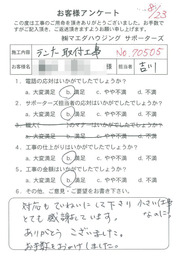 お客様アンケート
この度は工事のご用命を頂きありがとうございました。お手数で
すがご記入頂き、ご返送頂きますようお願い申し上げます。
㈱マエダハウジング サポーターズ
8/23
施工内容 ランナー取付工事 No.70505
お名前 様 担当者 吉川
1. 電話の応対はいかがでしたでしょうか？
a. 大変満足 b. 満足 c. やや不満 d. 不満
2. サポーターズ担当者の応対はいかがでしたでしょうか？
a. 大変満足 b. 満足 c. やや不満 d. 不満
3.
a. 大変満足 b. 満足 c. やや不満 d. 不満
4. 工事の仕上がりはいかがでしたでしょうか？
a. 大変満足 b. 満足 c. やや不満 d. 不満
5. 工事の金額はいかがでしたでしょうか？
a. 大変満足 b. 満足 c. やや不満 d. 不満
6. その他、ご意見・ご要望をお書き下さい。
対応もていねいにして下さり 小さい工事
なのに。
とても感謝しています。
ありがとう ございました。
お手数をおかけしました。